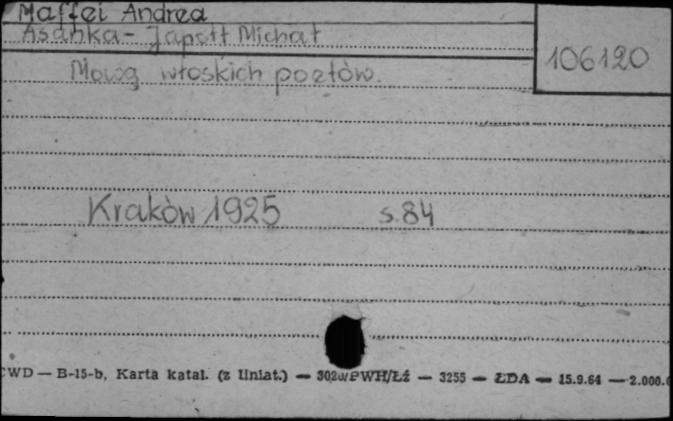 Maffei Andrea
Asanka-Japołł Michał
106120
Mową włoskich poetów.
Kraków 1925 s.84
CWD — B-15-b, Karta katal. (z liniat.) — 3020/PWH/Łź — 3255 — ŁDA — 15.9.64 — 2.000.0